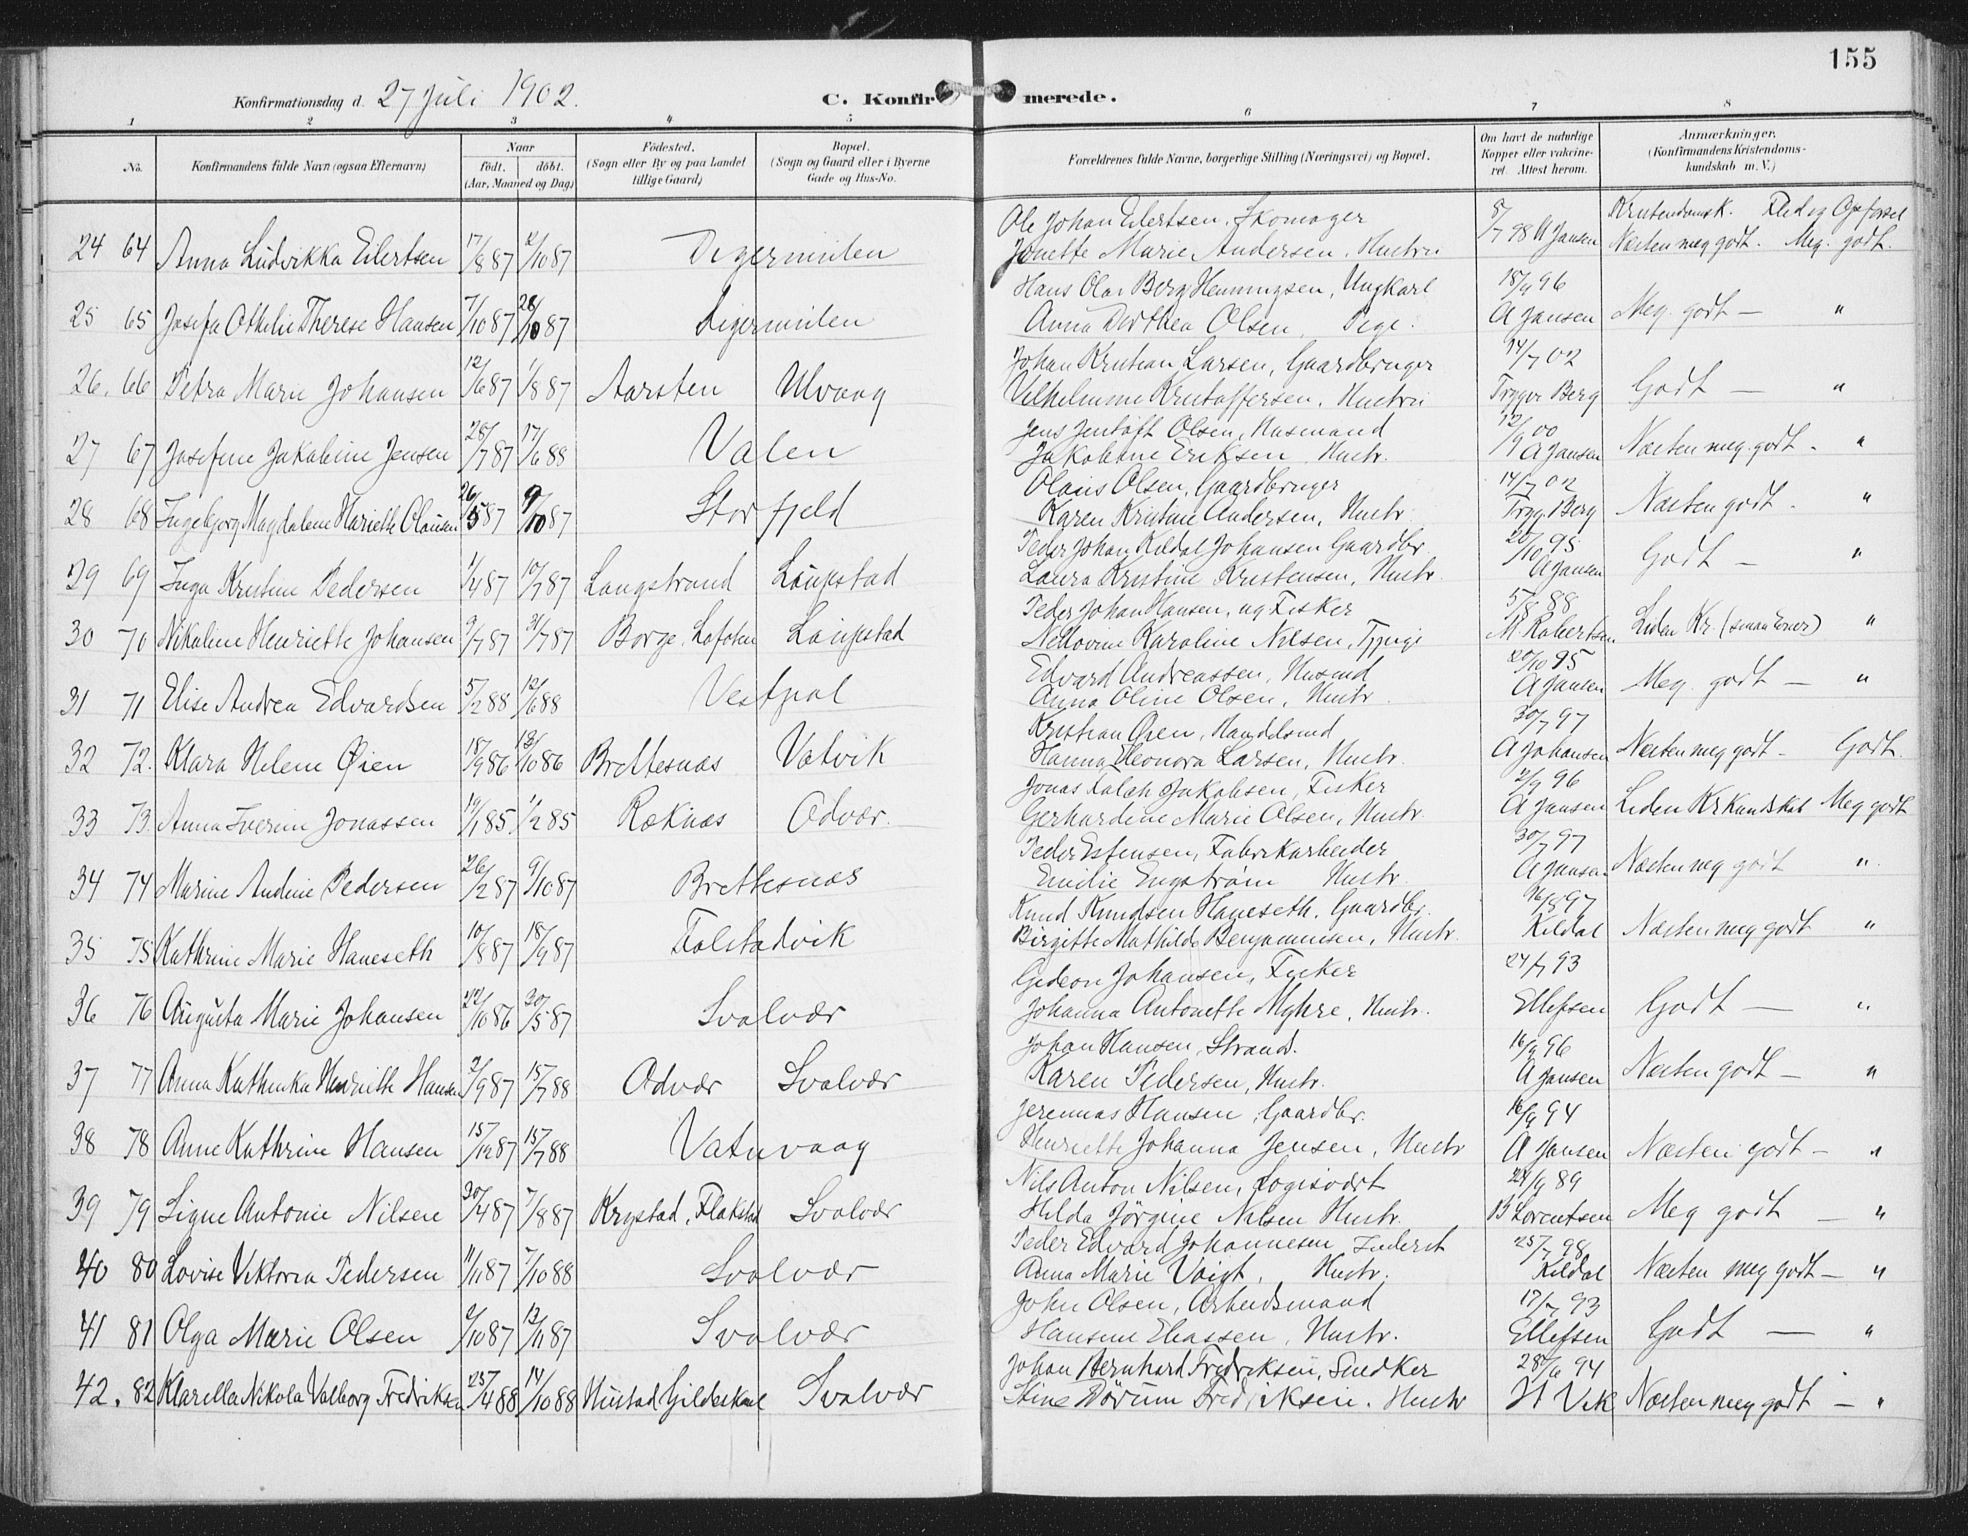 155
Konfirmationsdag d. 27 Juli 1902.
C. Konfirmerede.
1 2 3 4 5 6 7 8
No. Konfirmandens fulde Navn (ogsaa Efternavn) Naar født. døbt. (Aar, Maaned og Dag) Fødested. (Sogn eller By og paa Landet tillige Gaard) Bopæl. (Sogn og Gaard eller i Byerne Gade og Hus-No. Forældrenes fulde Navne, borgerlige Stilling (Næringsvei) og Bopæl. Om havt de naturlige Kopper eller vakcineret. Attest herom. Anmærkninger. (Konfirmandens Kristendomskundskab m. V.)
Kristendomsk. Flid og Opførsel
24 64 Anna Ludvikka Eilertsen 17/8 87 2/10 87 Digermulen Ole Johan Eilertsen, Skomager
Jonette Marie Andersen, Hustru 8/7 98 A Jansen Næsten meg godt. Meg. godt.
25 65 Josefa Othelie Therese Hansen 7/10 87 28/10 87 Digermulen Hans Olai Berg Henningsen, Ungkarl
Anna Dorthea Olsen, Pige. 18/9 96 A Jansen Meg. godt — "
26. 66 Petra Marie Johansen 12/6 87 1/8 87 Aarsten Ulvaag Johan Kristian Larsen, Gaardbruger
Vilhelmine Kristoffersen, Hustru 14/7 02 Trygve Berg Godt — "
27 67 Josefine Jakobine Jensen 28/7 87 17/6 88 Valen Jens Jentoft Olsen, Husmand
Jakobine Eriksen, Hustr. 12/9 00 A Jansen Næsten meg. godt. "
28 68 Ingebjorg Magdalene Hariette Olausen 26/5 87 9/10 87 Storfjeld Olaus Olsen, Gaardbruger
Karen Kristine Andersen, Hustr. 14/7 02 Tryg. Berg Næsten godt. "
29 69 Inga Kristine Pedersen 1/4 87 10/7 87 Langstrand Laupstad Peder Johan Kildal Johansen Gaardbr.
Laura Kristine Kristensen, Hustr. 20/10 95 A Jansen Godt — "
30 70 Nikoline Henriette Johansen 9/7 87 31/7 87 Borge, Lofoten Laupstad Peder Johan Hansen, ug Fisker
Karoline Nilsen, Tjpige 5/8 88 M Robertsen Liden Kr. (smaa Evner) "
31 71 Elise Andrea Edvardsen 5/2 88 12/6 88 Vestpol Edvard Andreassen, Husmd
Anna Oline Olsen, Hustr. 20/10 95 A Jansen Meg. godt — "
32 72. Klara Helene Øien 18/9 86 13/10 86 Brettesnæs Vatvik Kristian Øien, Handelsmd
Hanna Eleonora Larsen, Hustr. 30/7 97 A Johansen Næsten meg godt — Godt.
33 73 Anna Iverine Jonassen 19/1 85 1/2 85 Røknæs Odvær. Jonas Falch Jakobsen, Fisker
Gerhardine Marie Olsen, Hustr. 2/9 96 A Jansen Liden Kr kundskab Meg godt
34 74 Marine Andine Pedersen 26/2 87 9/10 87 Brettesnæs Peder Estensen, Fabrikarbeider
Emilie Engstrøm Hustr. 30/7 97 A Jansen Næsten meg godt "
35 75 Kathrine Marie Haneseth 10/8 87 18/9 87 Falstadvik Knud Knudsen Haneseth, Gaardbr.
Birgitte Mathilde Benjaminsen, Hustr. 16/8 97 Kildal Næsten meg godt "
36 76 Augusta Marie Johansen 22/10 86 30/5 87 Svolvær Gideon Johansen, Fisker
Johanna Antonette Myhre, Hustr. 24/7 93 Ellefsen Godt — "
37 77 Anna Kathinka Henriette Hansen 2/9 87 15/7 88 Odvær Svolvær Johan Hansen, Strands.
Karen Pedersen, Hustr. 16/9 96 A Jansen Næsten godt — "
38 78 Anne Kathrine Hansen 15/12 87 15/7 88 Vatnvaag Jeremias Hansen, Gaardbr.
Henriette Johanna Jensen, Hustr 16/9 94 A Jansen Næsten godt — "
39 79 Signe Antonie Nilsen 30/4 87 7/8 87 Krystad, Flakstad Svolvær Nils Anton Nilsen, Logisvært
Hilda Jørgine Nilsen Hustr. 24/9 89 B Lorentsen Meg godt — "
40 80 Lovise Viktoria Pedersen 11/11 87 7/10 88 Svolvær Peder Edvard Johannesen
Anna Marie Voigt, Hustr. 25/7 98 Kildal Næsten meg godt — "
41 81 Olga Marie Olsen 2/10 87 13/11 87 Svolvær John Olsen, Arbeidsmand
Hansine Eliassen, Hustr. 17/7 93 Ellefsen Godt — "
42. 82 Klarella Nikola Valborg Fredriksen 25/4 88 14/10 88 Hustad Gildeskaal Svolvær Johan Bernhard Fredriksen, Snedker
Stine Dørum Fredriksen. Hustr 28/6 94 H Vik Næsten meg godt — "